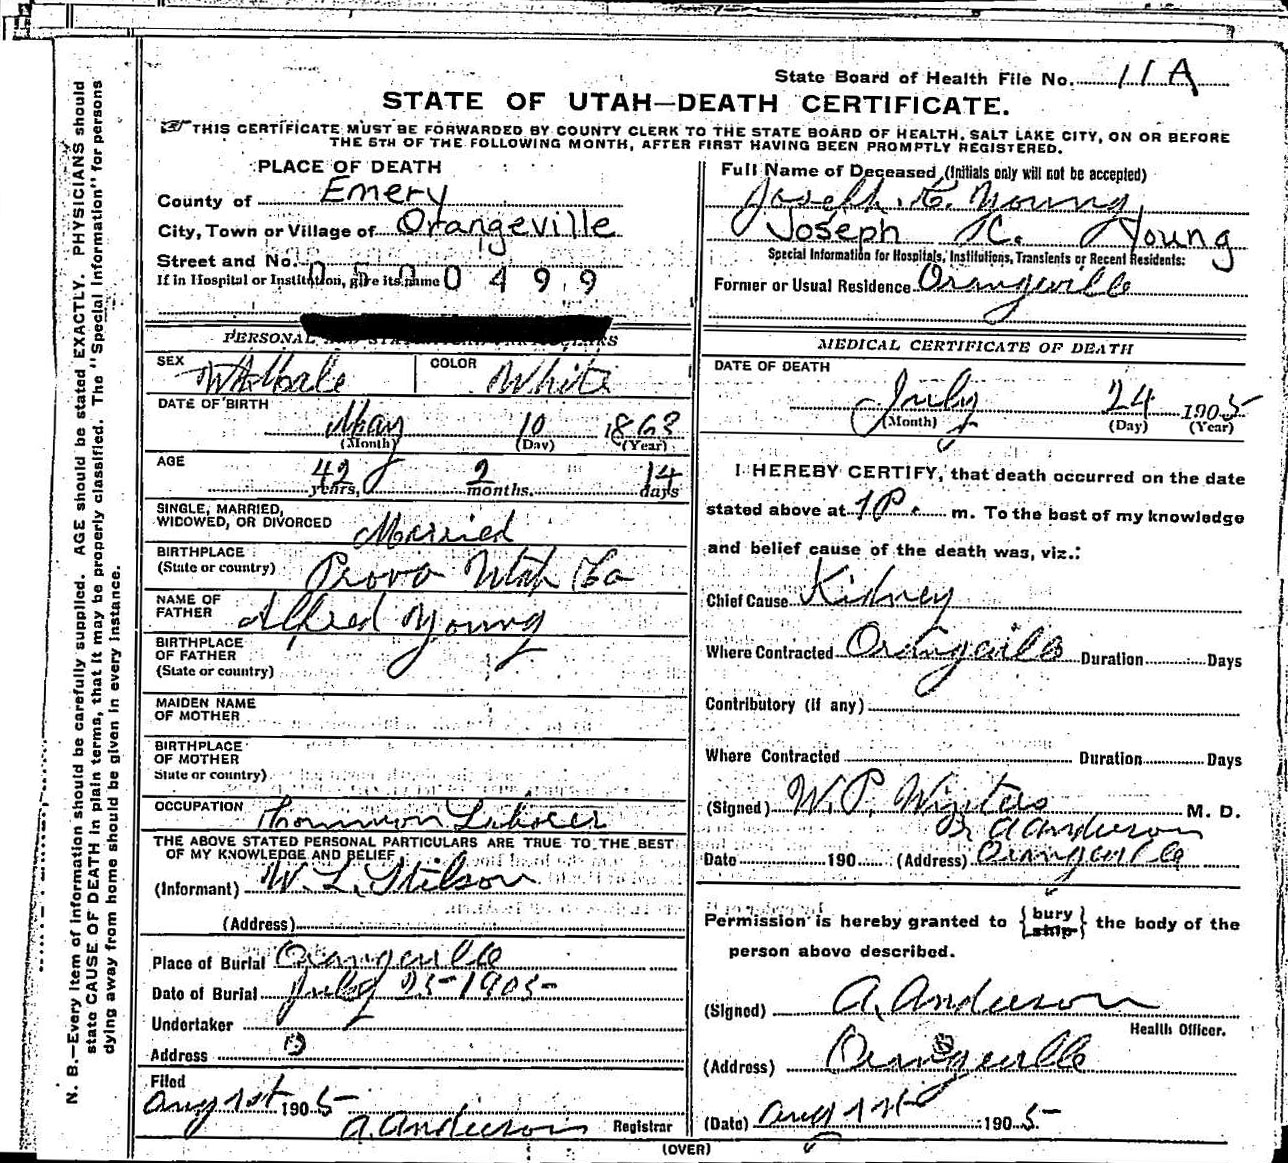 State Board of Health File No. 11A
STATE OF UTAH—DEATH CERTIFICATE.
THIS CERTIFICATE MUST BE FORWARDED BY COUNTY CLERK TO THE STATE BOARD OF HEALTH, SALT LAKE CITY, ON OR BEFORE
THE 5TH OF THE FOLLOWING MONTH, AFTER FIRST HAVING BEEN PROMPTLY REGISTERED.
PLACE OF DEATH
County of Emery
City, Town or Village of Orangeville
Street and No.
If in Hospital or Institution, give its name 0500499
PERSONAL AND STATISTICAL PARTICULARS
SEX Male
COLOR White
DATE OF BIRTH
May 10 1863
(Month) (Day) (Year)
AGE
42 years, 2 months. 14 days
SINGLE, MARRIED,
WIDOWED, OR DIVORCED Married
BIRTHPLACE
(State or country) Provo Utah Co
NAME OF
FATHER Alfred Young
BIRTHPLACE
OF FATHER
(State or country)
MAIDEN NAME
OF MOTHER
BIRTHPLACE
OF MOTHER
State or country)
OCCUPATION Common Laborer
THE ABOVE STATED PERSONAL PARTICULARS ARE TRUE TO THE BEST
OF MY KNOWLEDGE AND BELIEF
(Informant) W. L. Stilson
(Address)
Place of Burial Orangeville
Date of Burial July 25-1905-
Undertaker
Address
Filed
Aug 1st 1905-
A. Anderson Registrar
Full Name of Deceased (Initials only will not be accepted)
Joseph K. Young
Joseph K. Young
Special Information for Hospitals, Institutions, Transients or Recent Residents:
Former or Usual Residence Orangeville
MEDICAL CERTIFICATE OF DEATH
DATE OF DEATH
July 24 1905
(Month) (Day) (Year)
I HEREBY CERTIFY, that death occurred on the date
stated above at P. m. To the best of my knowledge
and belief cause of the death was, viz.:
Chief Cause Kidney
Where Contracted Orangeville Duration Days
Contributory (if any)
Where Contracted Duration Days
(Signed) W. P. Winters M. D.
A Anderson
Date 190 (Address) Orangeville
Permission is hereby granted to {bury ship} the body of the
person above described.
(Signed) A. Anderson
Health Officer.
(Address) Orangeville
(Date) Aug 1st 1905-
(OVER)
N. B.—Every item of information should be carefully supplied. AGE should be stated EXACTLY. PHYSICIANS should
state CAUSE OF DEATH in plain terms, that it may be properly classified. The "Special Information" for persons
dying away from home should be given in every instance.